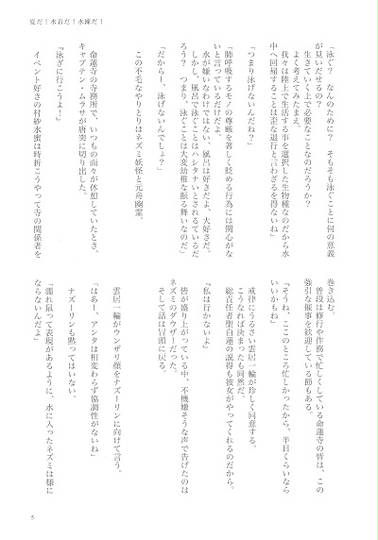 夏だ！水着だ！水練だ！
「泳ぐ？　なんのために？　そもそも泳ぐことに何の意義
が見いだせるの？
生きていく上で必要なことなのだろうか？
よく考えてみたまえ。
我々は陸上で生活する事を選択した生物種なのだから水
中へ回帰することは歪な退行と言わざるを得ないね」
「つまり泳げないんだね？」
「肺呼吸するモノの尊厳を著しく貶める行為には関心がな
いと言っているだけだよ。
水が嫌いなわけではない。風呂は好きだよ、大好きだ。
しかし、風呂で泳ぐことはハシタナいとされているだ
ろう？　つまり、泳ぐことは大変幼稚な振る舞いなのだ」
「だからー、泳げないんでしょ？」
この不毛なやりとりはネズミ妖怪と元舟幽霊。
命蓮寺の寺務所で、いつもの面々が休憩していたとき、
キャプテン・ムラサが唐突に切り出した。
『泳ぎに行こうよー！』
イベント好きの村紗水蜜は時折こうやって寺の関係者を
巻き込む。
普段は修行や作務で忙しくしている命蓮寺の皆は、この
強引な催事を歓迎している節もある。
「そうね、ここのところ忙しかったから、半日くらいなら
いいかもね」
戒律にうるさい雲居一輪が珍しく同意する。
こうなれば決まったも同然だ。
総責任者聖白蓮の説得も彼女がやってくれるのだから。
「私は行かないよ」
皆が盛り上がっている中、不機嫌そうな声で告げたのは
ネズミのダウザーだった。
そして話は冒頭に戻る。
雲居一輪がウンザリ顔をナズーリンに向けて言う。
「はあー、アンタは相変わらず協調性がないね」
ナズーリンも黙ってはいない。
「濡れ鼠って表現があるように、水に入ったネズミは様に
ならないんだよ」
5